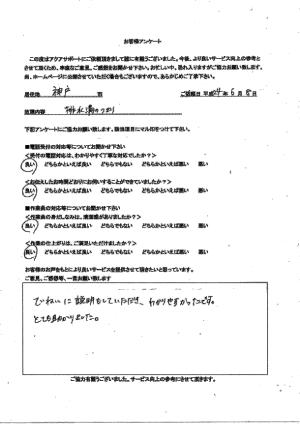 お客様アンケート
この度はアクアサポートにご依頼頂きまして誠に有難うございました。今後、より良いサービス向上の参考と
させて頂くため、率直なご意見、ご感想をお聞かせ下さい。お忙しい中、恐れ入りますがご協力お願い致します。
尚、ホームページに公開させていただく場合もございますので、あらかじめご了承下さい。
居住地 神戸 市 ご依頼日 平成24年6月8日
依頼内容 排水溝のつまり
下記アンケートにご協力お願い致します。該当項目にマル印をつけて下さい。
■電話受付の対応等についてお聞かせ下さい
<受付の電話対応は、わかりやすく丁寧な対応でしたか?>
良い どちらかといえば良い どちらでもない どちらかといえば悪い 悪い
<お伝えしたお時間どおりにお伺いすることができていましたか?>
良い どちらかといえば良い どちらでもない どちらかといえば悪い 悪い
■作業員の対応等についてお聞かせ下さい
<作業員の身だしなみは、清潔感がありましたか?>
良い どちらかといえば良い どちらでもない どちらかといえば悪い 悪い
<作業の仕上がりは、ご満足いただけましたか?>
良い どちらかといえば良い どちらでもない どちらかといえば悪い 悪い
お客様のお声をもとにより良いサービスを提供させて頂きたいと思っています。
ご意見、ご感想等、一言お願い致します
ていねいに説明もしていただき、わかりやすかったです。
とても助かりました。
ご協力有難うございました。サービス向上の参考にさせて頂きます。